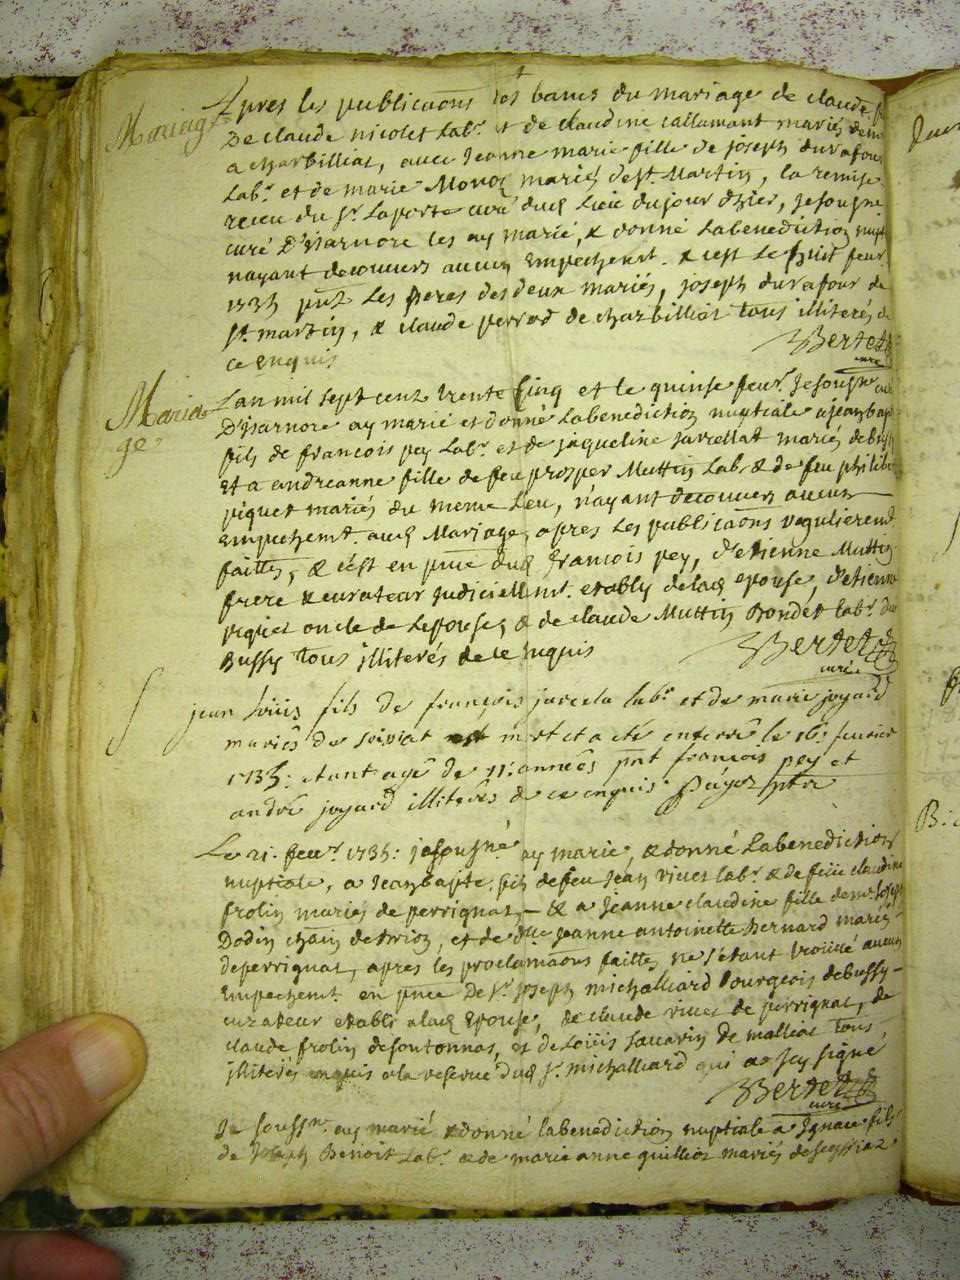 Mariage
Apres les publicaõns des bancs du mariage de claude
De claude nicolet Labr. et de claudine callamant mariés dem
a charbilliat, avec Jeanne marie fille de joseph durafour
Labr. et de marie Monoz mariés de St. Martin, la remise
receu du Sr. Laporte curé dud. Lieu du jour d'hier, Je soussigné
curé D'isarnore les ay marié, & donné La benediction nupt
nayant decouvers aucun Empechemt. & cest Le huit feur.
1735 pnts Les peres des deux mariés, joseph duravour de
St. martin, & claude perrod de charbilliat tous illiterés de
ce enquis
Bertet
curé
Maria
ge
Lan mil sept cent trente Cinq et le quinse feur. Je soussigné curé
D'isarnore ay marié et donné La benediction nuptiale a jean bap
fils de francois pey Labr. et de jaqueline jarcellat mariés de bussy
Et a andreanne fille de feu prosper Muttin Labr. & de feu philib
piquet mariés du meme Lieu, n'ayant decouvers aucun
Empechemt. aud. Mariage, apres Les publicaõns regulieremt.
faittes, & c'est en pnce dud. francois pey, d'etienne Muttin
frere & curateur judiciellemt. etably de lad. epouse, d'etienne
piquet oncle de Lepouse, & de claude Muttin Bondet labr. de
Bussy tous illiterés de ce Enquis
Bertet
curé
jean Loüis fils de françois jarcela labr. et de marie joyard
mariés de soiriat est mort et a eté enterré le 16. feuvrier
1735: etant agé de 11. années pnt francois pey et
andré joyard illiterés de ce enquis
Le 21. feur. 1735: je soussigné ay marié, & donné La benediction
nuptiale, a Jean bapte. fils de feu Jean vuiet labr. & de feüe claudine
frolin mariés de perrignat, — & a Jeanne claudine fille de mr. Joseph
Dodin et de dlle. Jeanne antoinette Bernard mariés
de perrignat, apres les proclamaõns faittes, ne s'etant trouué aucun
Empechemt. en pnce De Sr. joseph michalliard bourgeois de bussy —
curateur etabli a lad. Epouse, de claude vuiet de perrignat, de
claude frolin de sontonnas, et de Loüis savarin de malliat tous
illiterés enquis a la reserve dud. Sr. michalliard qui a Icy signé
Bertet
curé
Je soussné. ay marié & donné la benediction nuptiale a Ignace fils
de Joseph Benoit Labr. & de marie anne quillot mariés de